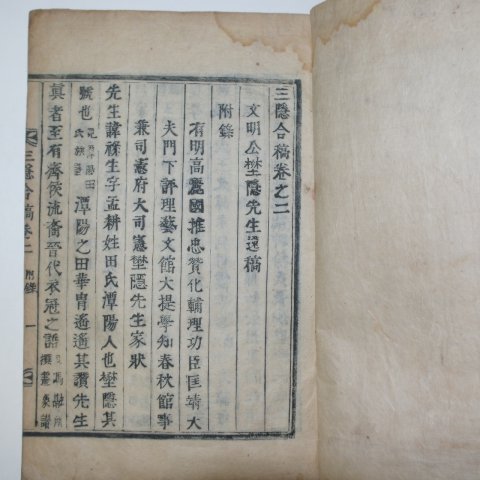 三隱合稿卷之二
文明公埜隱先生遺稿
附錄
有明高麗國推忠贊化輔理功臣匡靖大
夫門下評理藝文館大提學知春秋館事
兼司憲府大司憲埜隱先生家狀
先生諱祿生字孟耕姓田氏潭陽人也埜隱其
號也 潭陽之田華胄遙遙其讚先生
眞者至有齊侯流裔晉代衣冠之語
三隱合稿卷二 附錄 一